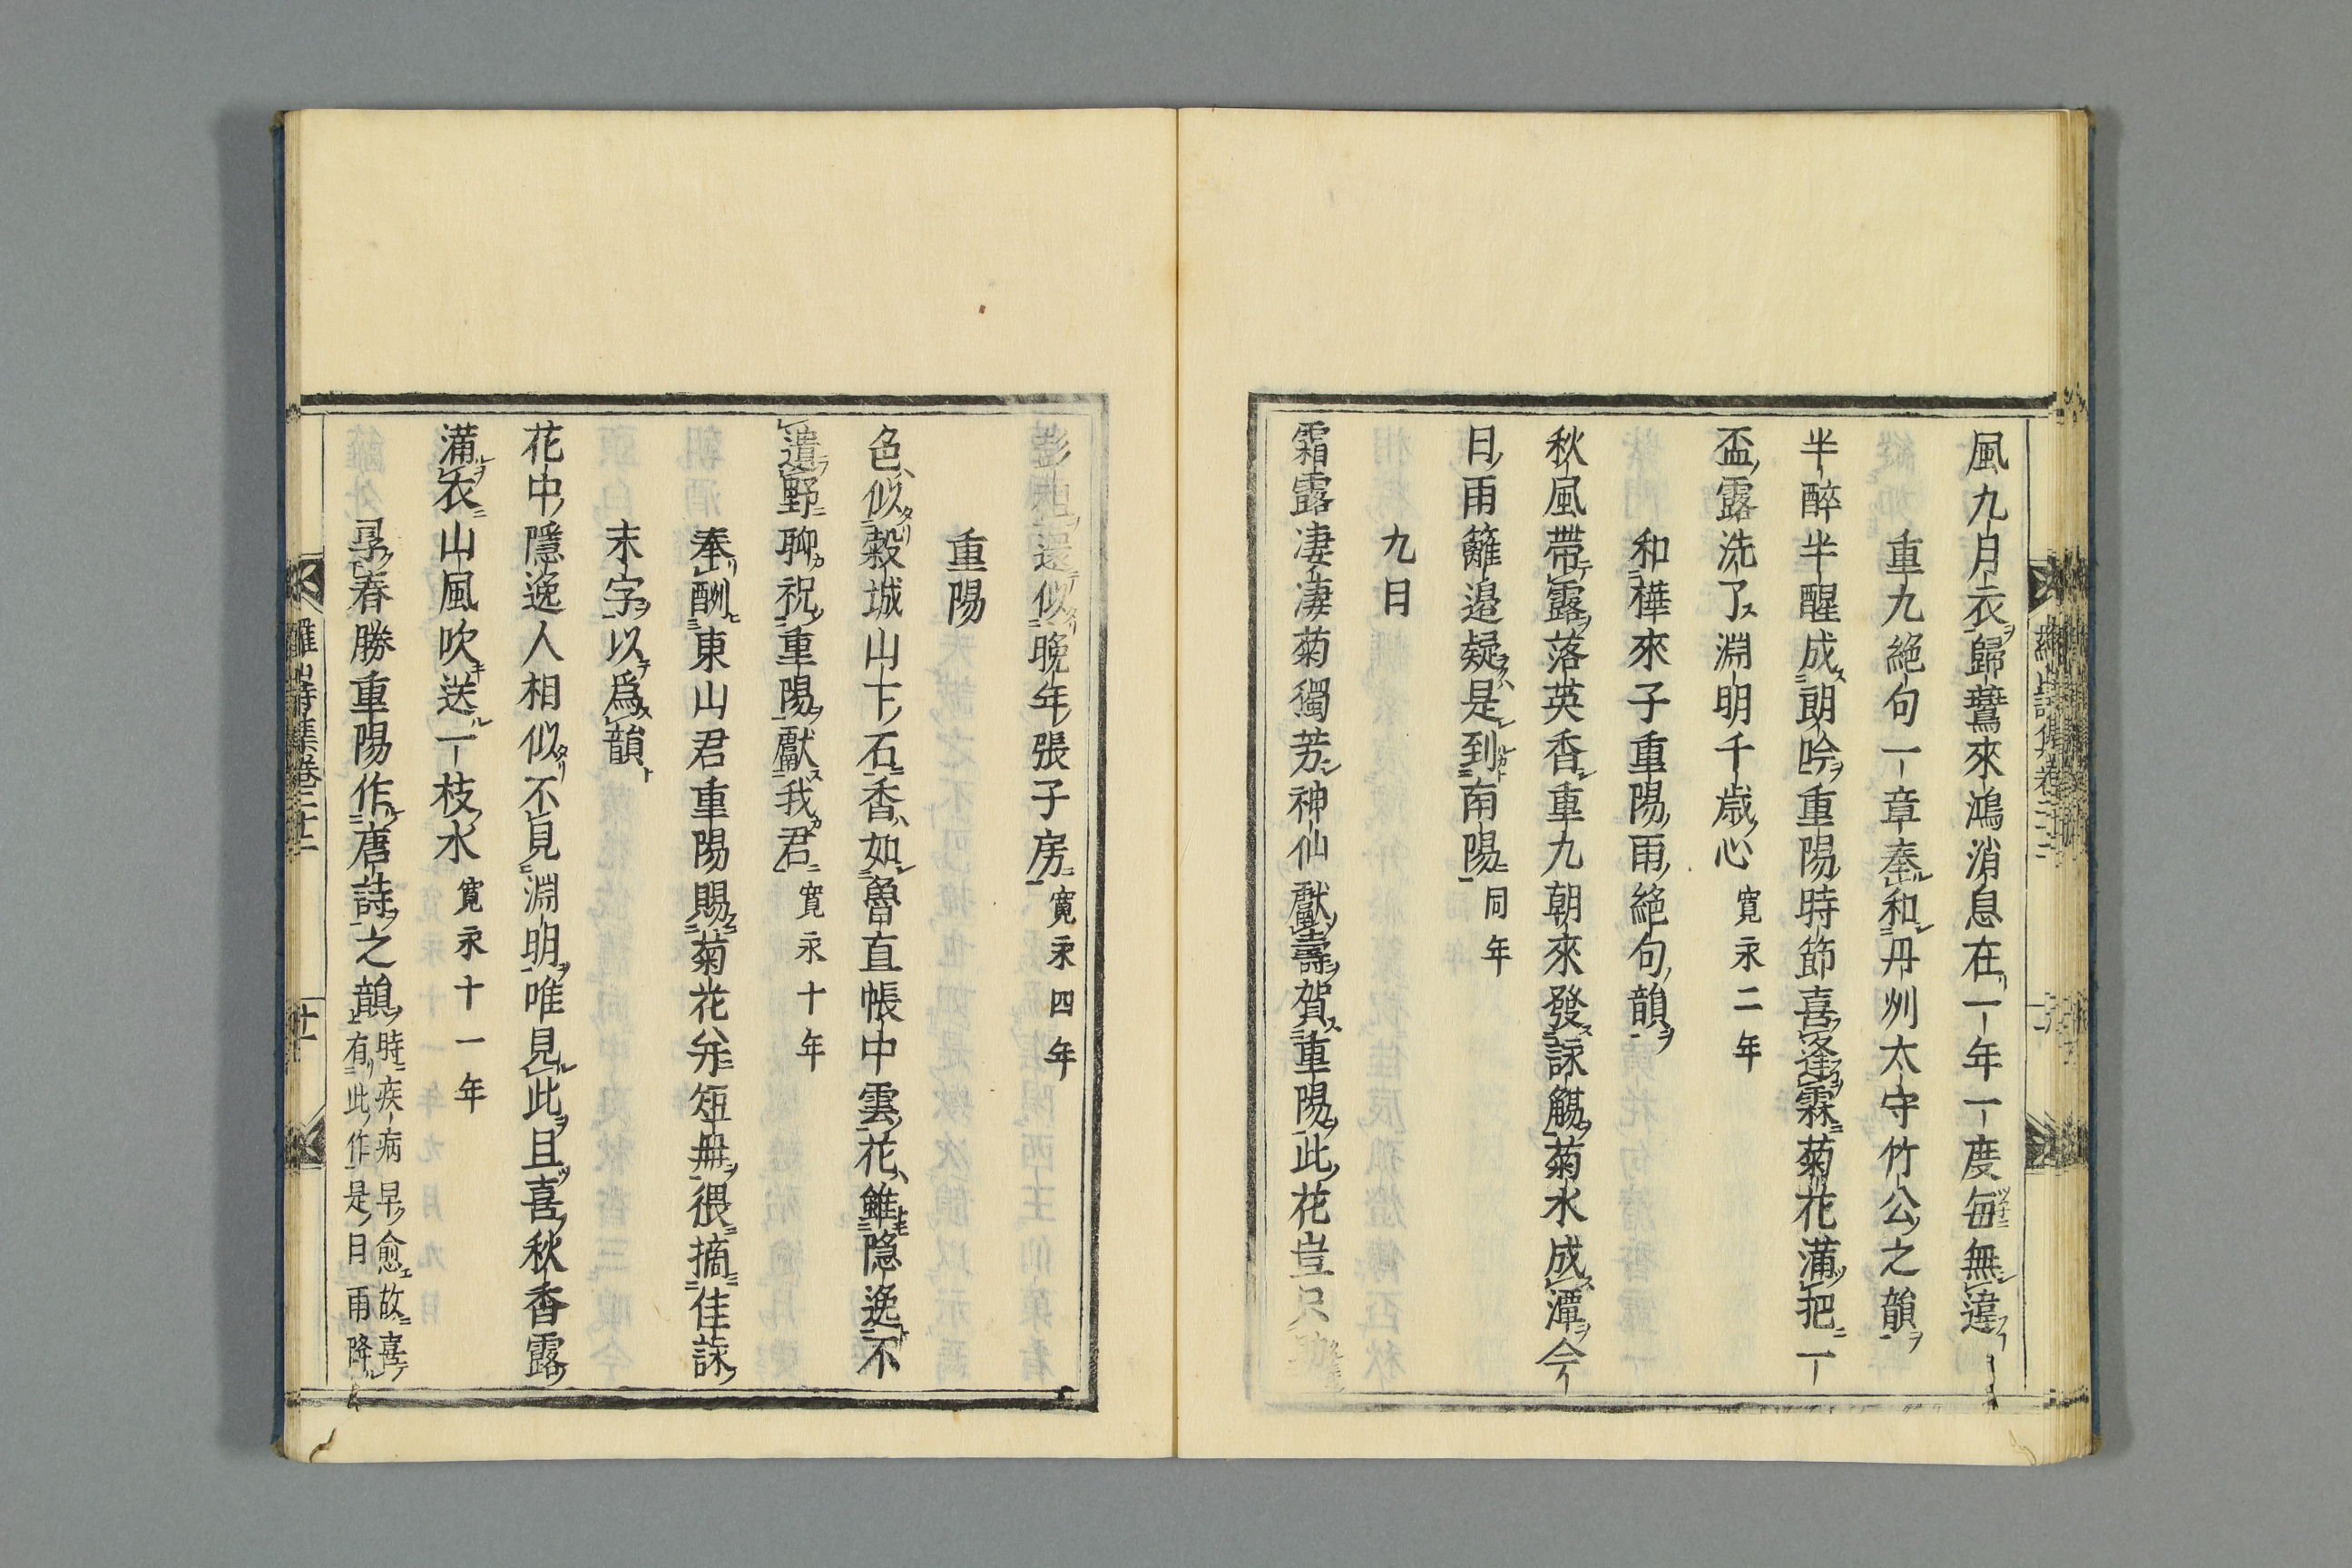 風九月衣歸鷰來鴻消息在一年一度每無違
重九絕句一章奉和丹州太守竹公之韻
半醉半醒成朗吟重陽時節喜逢霖菊花滿把一
盃露洗了淵明千歲心 寬永二年
和樺來子重陽雨絕句韻
秋風帶露落英香重九朝來發詠觴菊水成潭今
日雨籬邊疑是到南陽 同年
九日
霜露凄凄菊獨芳神仙獻壽賀重陽此花豈只
彭祖還似晚年張子房 寬永四年
重陽
色似穀城山下石香如魯直帳中雲花雖隱逸不
遺野聊祝重陽獻我君 寬永十年
奉酬東山君重陽賜菊花并短冊猥摘佳詠
末字以爲韻
花中隱逸人相似不見淵明唯見此且喜秋香露
滿衣山風吹送一枝水 寬永十一年
尋春勝重陽作唐詩之韻 時疾病早愈故喜
有此作是日雨降
羅山詩集卷三十二